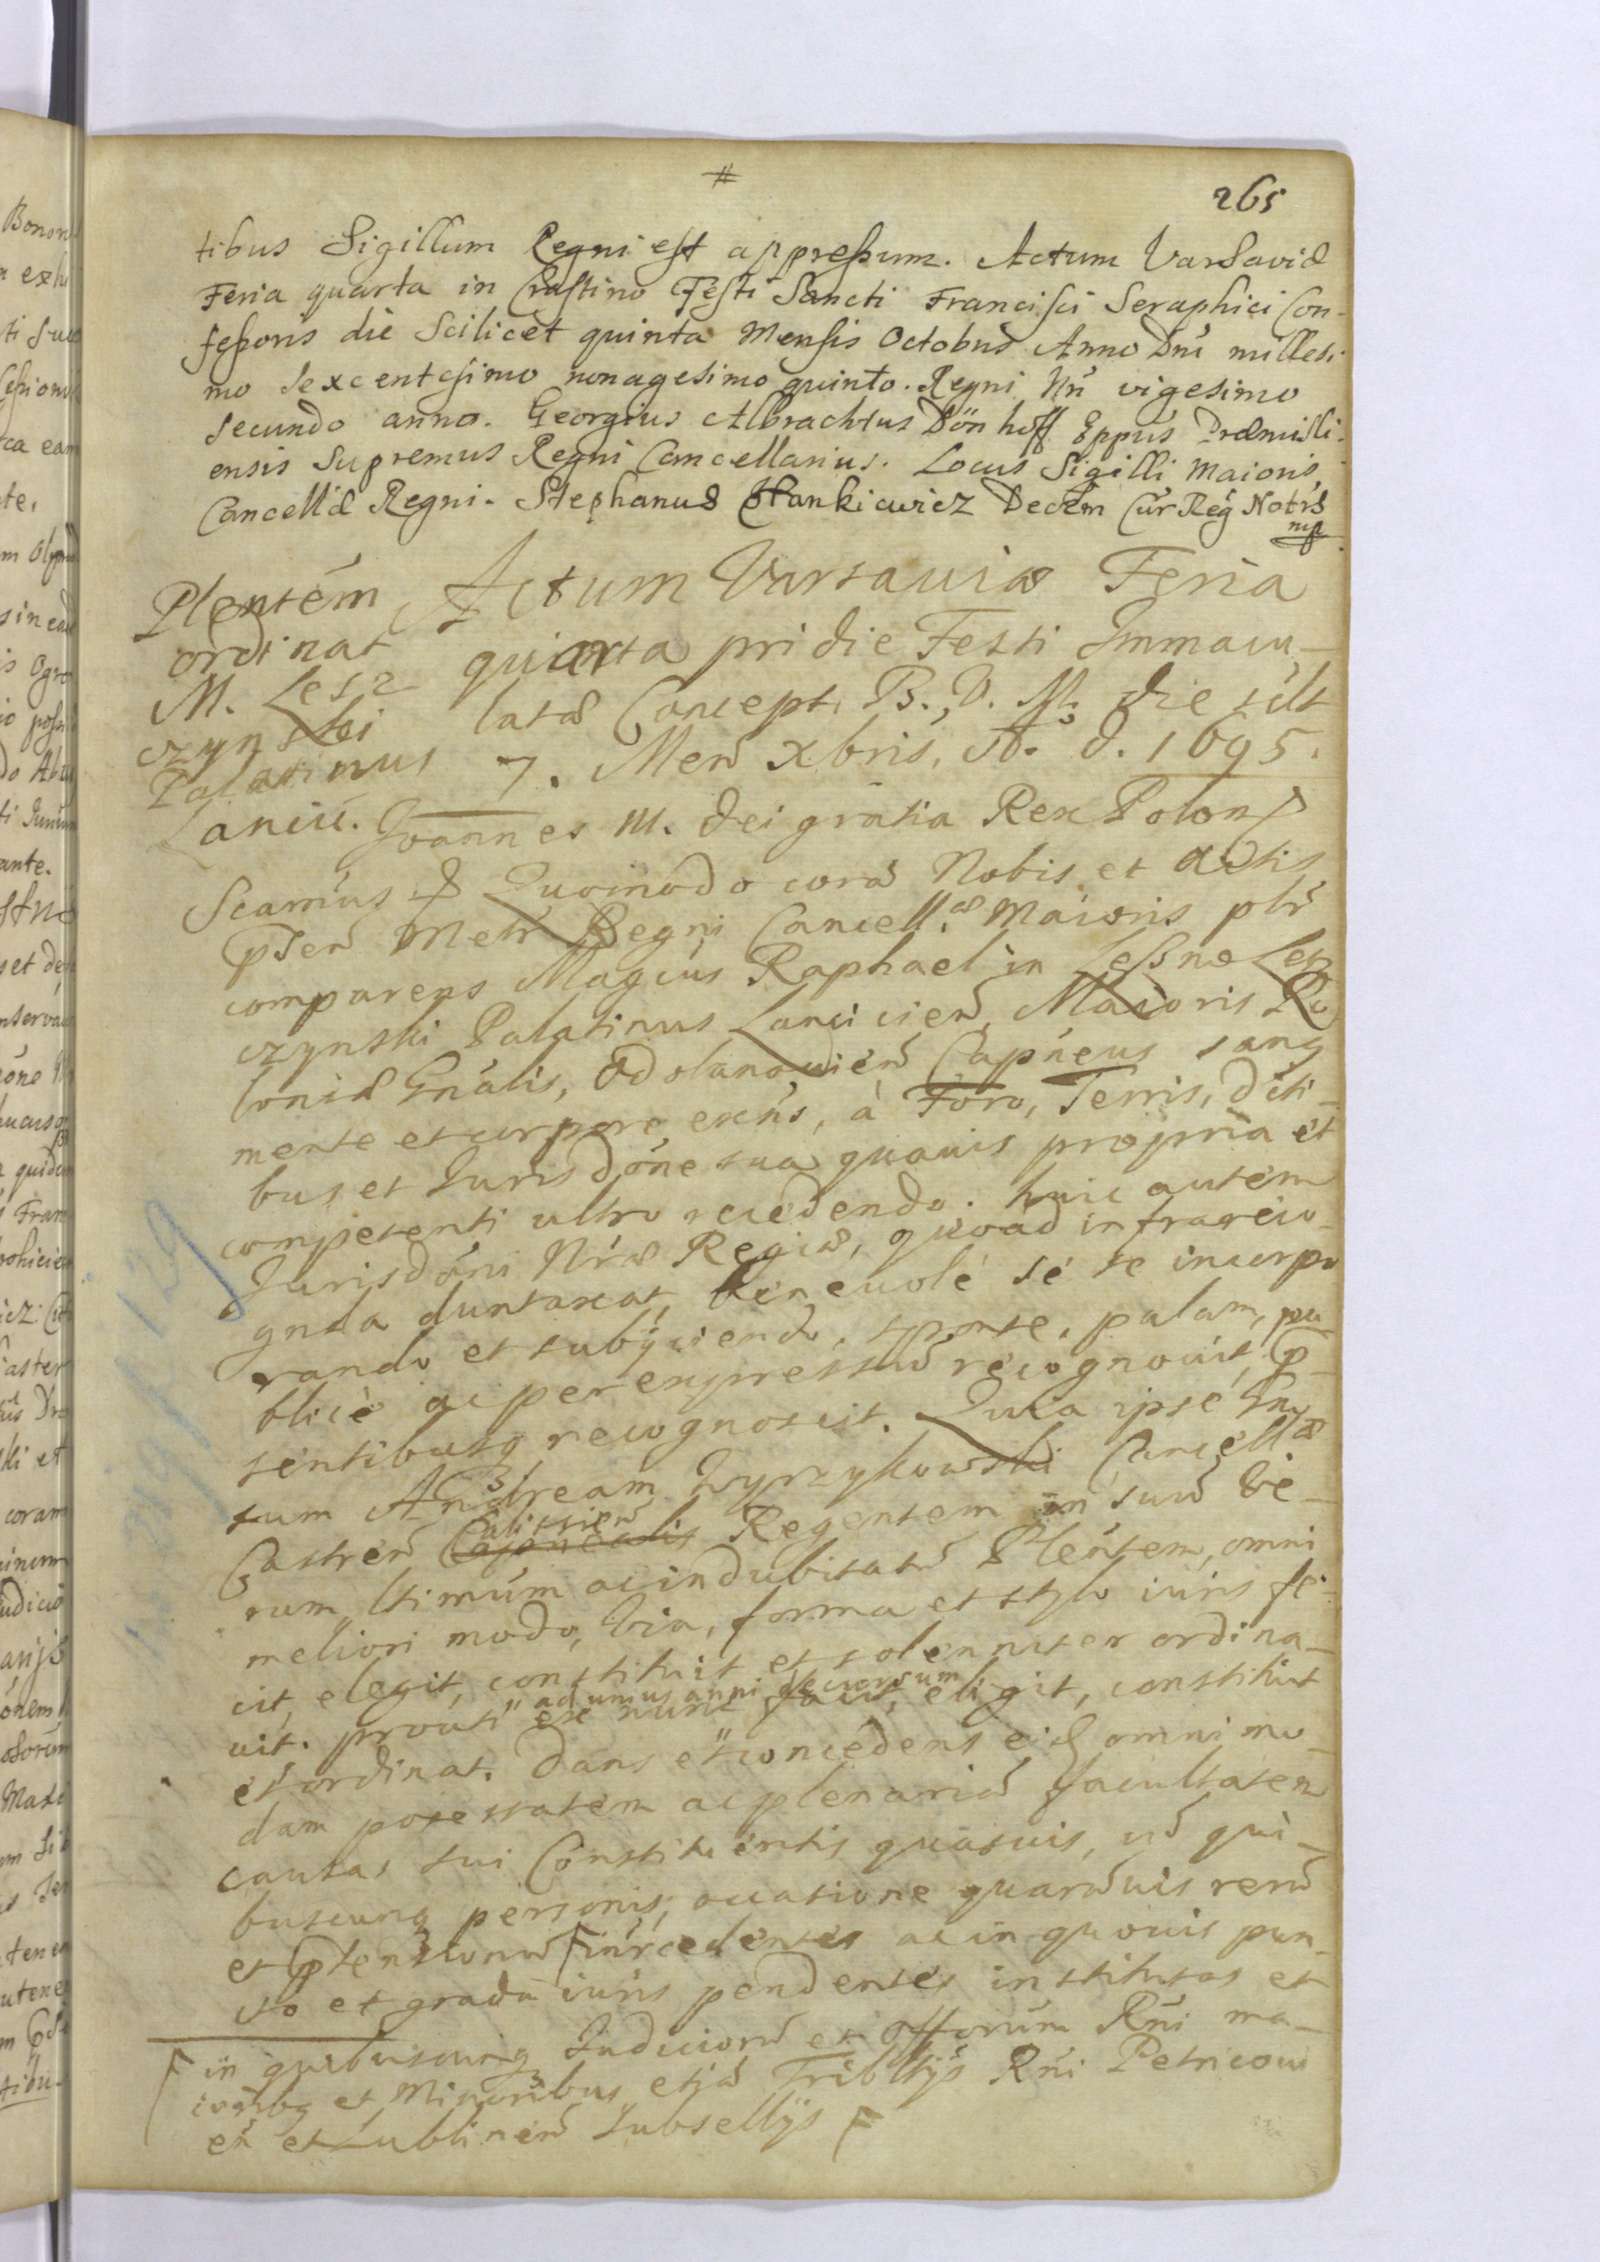 #
265
tibus Sigillum Regni est appressum. Actum Varsaviæ
Feria quarta in Crastino Festi Sancti Francisci Seraphici Con-
fessoris die Scilicet quinta Mensis Octobris Anno Dni millesi-
mo sexcentesimo nonagesimo quinto. Regni Nri vigesimo
secundo anno. Georgius Albrachtus Dönhoff Eppus Præmisli-
ensis Supremus Regni Cancellarius. Locus Sigilli Maioris
Cancellæ Regni. Stephanus Hankiewicz Decem Cur Reg Notrs
mp
Plentem
ordinat
M. Lesz
czynski
Palatinus
Lanciū.
Actum Varsaviæ Feria
quarta pridie Festi Immacu-
latæ Concept. B. V. M. die silt
7. Men xbris, A. D. 1695.
Joannes III. Dei gratia Rex Polon
Scamus Quomodo corā Nobis et actis
pnsen Metr Regni Cancell.æ Maioris plr
comparens Magcus Raphael in Lessno Lesz
czynski Palatinus Lancicien, Maioris Po
loniæ Gnalis, Odolanovien Capneus sang
mente et corpore exens, à Foro, Terris, dicti-
bus et Jurisdone sua quavis propria et
competenti ultro recedendo. huic autem
Jurisdoni Nræ Regiæ, quoad infrareco-
gnta duntaxat, benevolé se se incorpo
rando et subijciendo, sponte, palam, pu-
blice ac per expressū recognovit, p-
sentibusq recognoscit. Quia ipse Gn
sum Andream Zyrzykowski Cancellæ
Castren Calissien Regentem in suū ve-
rum ltimum ac indubitatū Plentem, omni
meliori modo, via, forma et stylo iuris fe-
cit, elegit, constituit et solenniter ordina-
vit. prouti ad unius anni decursum
ex nunc facit, eligit, constituit
et ordinat. Dans et concedens eid omnimo-
dam potestatem ac plenariā facultatem
causas sui Constituentis quasvis, cū qui-
buscunq personis, occasione quarūvis rerū
et ptensionū F inrcedentes ac in quovis pun-
cto et gradu iuris pendentes institutas et
F in quibuscunq Judiciorū et Offorum Rni ma-
ioribg et Minoribus etjā Tribltijs Rni Petricovi
en et Lublinen Subsellijs F